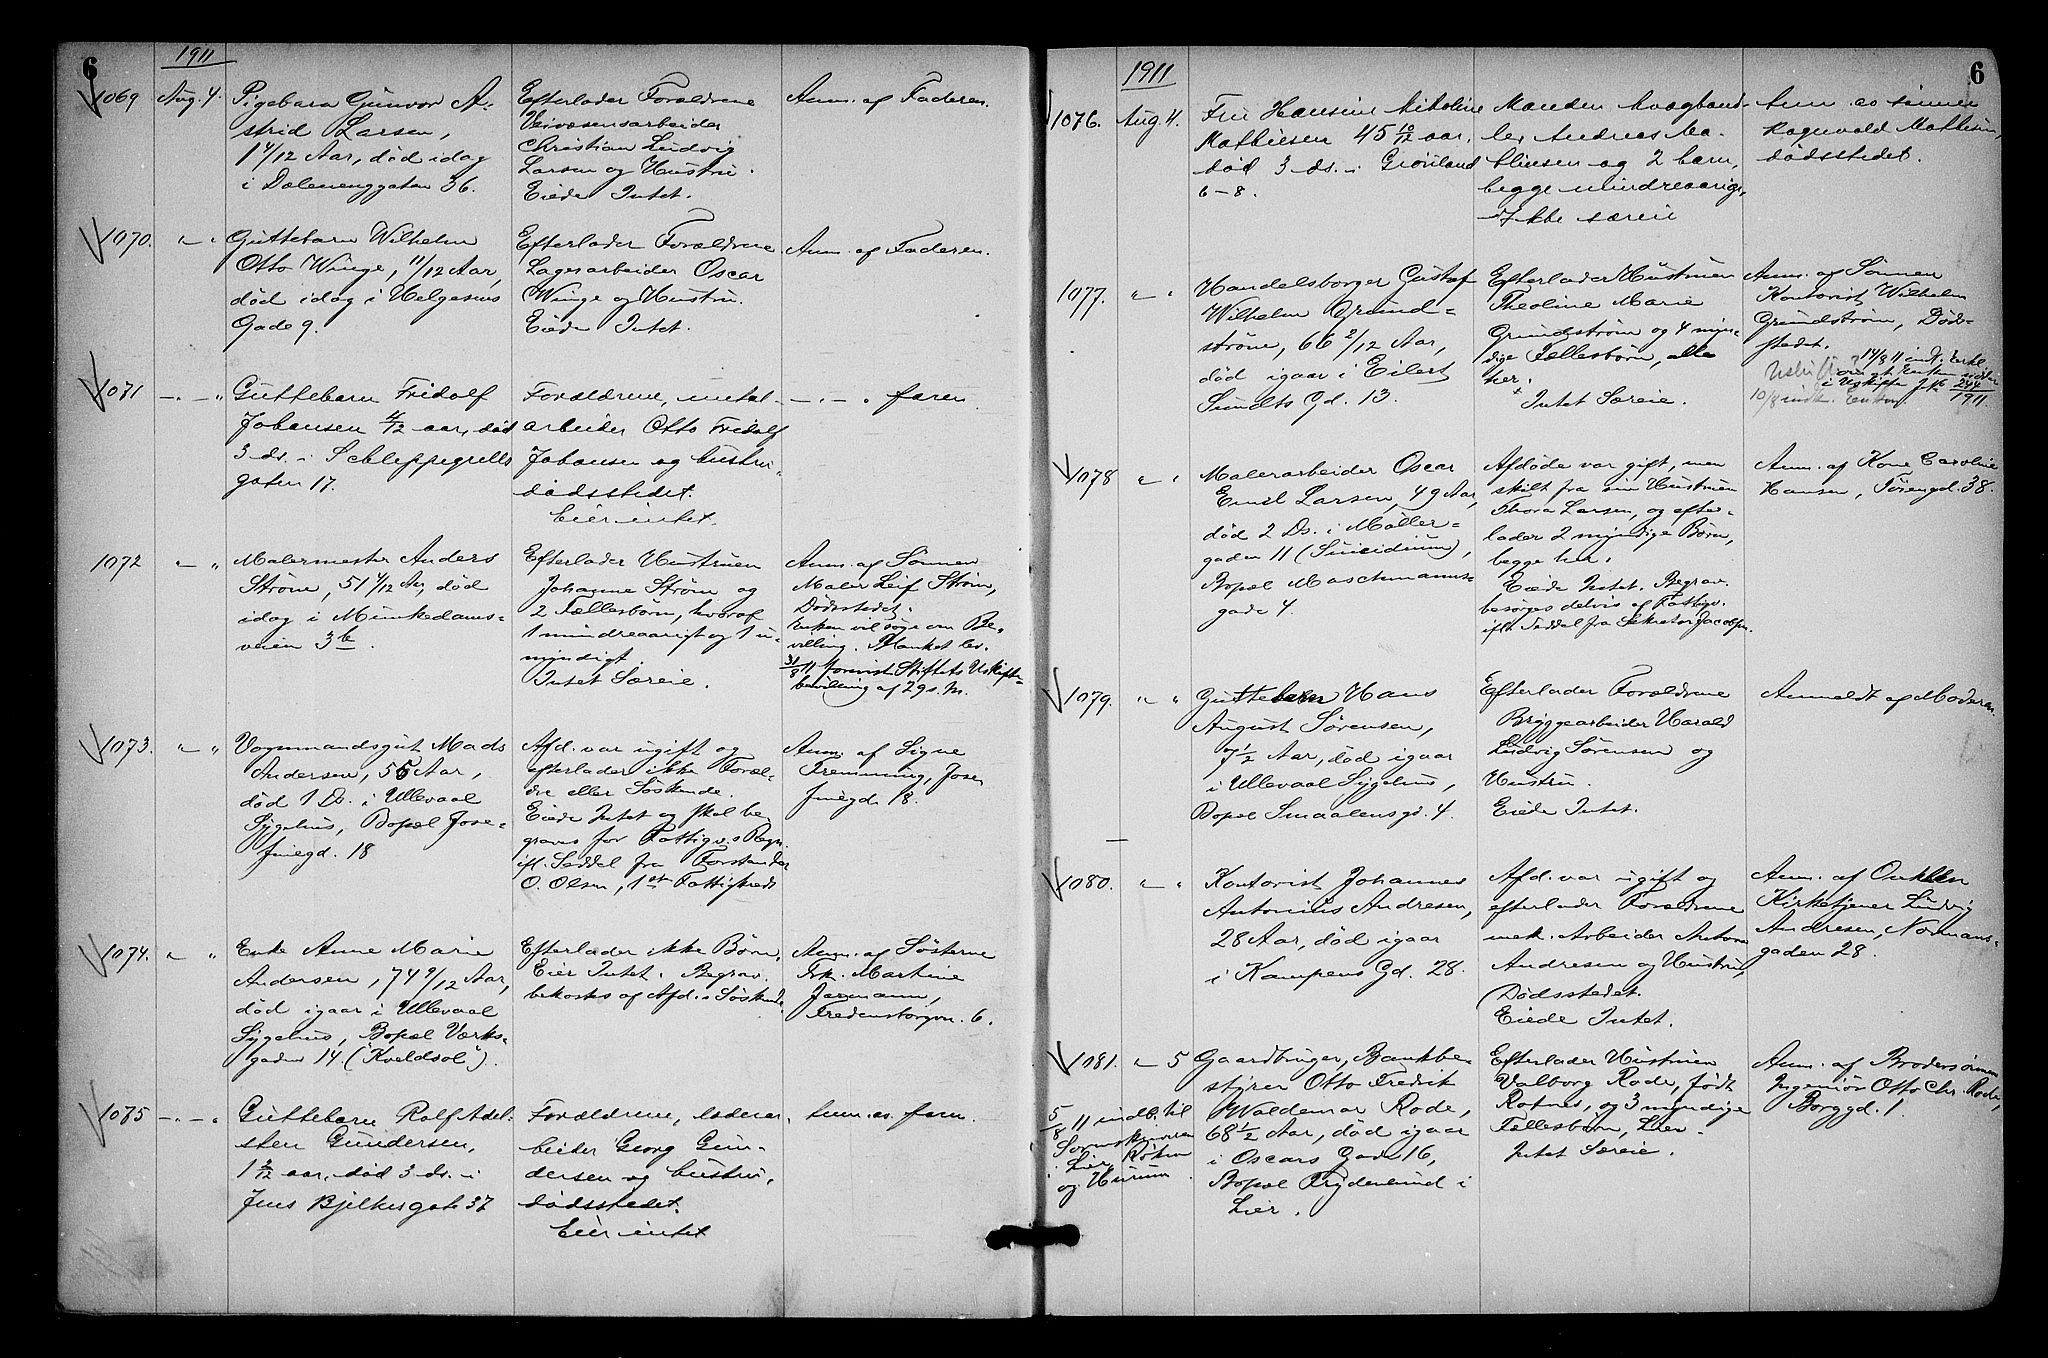 6
1911
1069
Aug. 4.
Pigebarn Gunvor A-
strid Larsen,
1 4/12 Aar, død idag
i Dælenenggaten 36.
Efterlader Forældrene
Veivæsensarbeider
Christian Ludvig
Larsen og Hustru.
Eiede Intet.
Anm. af Faderen.
1070.
" "
Guttebarn Wilhelm
Otto Winge, 11/12 Aar,
død idag i Helgesens
Gade 9.
Efterlader Forældrene
Lagerarbeider Oscar
Winge og Hustru.
Eiede Intet.
Anm. af Faderen.
1071
-"-"
Guttebarn Fridolf
Johansen 4/12 aar, død
3 ds. i Schleppegrells
gaten 17.
Forældrene, metal-
arbeider Otto Fridolf
Johansen og hustru
dødsstedet.
Eier intet.
-"-" faren.
1072
" "
Malermester Anders
Strøm, 51 4/12 Aar, død
idag i Munkedams-
veien 3b.
Efterlader Hustruen
Johanne Strøm og
2 Fællesbørn, hvoraf
1 mindreaarigt og 1 u-
myndigt
Intet Særeie.
Anm. af Sønnen
Maler Leif Strøm,
Dødsstedet.
Enken vil søge om Be-
villing. Blanket lev.
31/8 11 forevist Stiftets Uskifte-
bevilling af 29 s. m.
1073.
" "
Vognmandsgut Mads
Andersen, 55 Aar,
død 1 Ds. i Ullevaal
Sygehus, Bopæl Jose-
finegd. 18
Afd. var ugift og
efterlader ikke Foræl-
dre eller Søskende.
Eiede Intet og skal be
graves for Fattigv.s Regn.
ifl. Seddel fra Forstander
O. Olsen, 1ste Fattigkreds
Anm. af Signe
Fremming, Jose
finegd. 18.
1074.
" "
Enke Anne Marie
Andersen, 74 9/12 Aar,
død igaar i Ullevaal
Sygehus, Bopæl Værks-
gaden 14 ("Kveldsol").
Efterlader ikke Børn.
Eier Intet. Begrav.
bekostes af Afd.s Søskende
Anm. af Søsteren
Frk. Martine
Jarmann,
Fredensborgvn. 6.
1075
-"-"
Guttebarn Rolf Adel-
sten Gundersen,
1 2/12 aar, død 3 ds. i
Jens Bjelkesgate 37
Forældrene, lodear-
beider Georg Gun-
dersen og hustru,
dødsstedet.
Eier intet
Anm. av faren.
1911
6
1076.
Aug. 4.
Fru Hansine Nikoline
Mathiesen 45 10/12 aar,
død 3 ds. i Grønland
6-8.
Manden
Andreas Ma-
thiesen og 2 barn,
begge mindreaarige.
Ikke særeie
Anm av sønnen
Ragnvald Mathiesen,
dødsstedet.
1077.
" "
Handelsborger Gustaf
Wilhelm Grund-
strøm, 66 2/12 Aar,
død igaar i Eilert
Sundts Gd. 13.
Efterlader Hustruen
Theoline Marie
Grundstrøm og 4 myn-
dige Fællesbørn, alle
her.
Intet Særeie.
Anm. af Sønnen
Kontorist Wilhelm
Grundstrøm, Døds-
stedet.
14/8 11 indk. Enke
om at Enken sidder
i Uskifte J.N. 244/1911.
10/8 indk. Enken.
1078
" "
Malerarbeider Oscar
Emil Larsen, 49 Aar,
død 2 Ds. i Møller-
gaden 11 (Suicidium),
Bopæl Maschmanns-
gade 4.
Afdøde var gift, men
skilt fra sin Hustruen
Thora Larsen, og efter-
lader 2 myndige Børn,
begge her.
Eiede Intet. Begrav.
besørges delvis af Fattigv.
ifl. Seddel fra Sekretær Jacobsen.
Anm. af Kone Caroline
Hansen, Torengd. 38.
1079.
" "
Guttebarn Hans
August Sørensen,
7 1/2 Aar, død igaar
i Ullevaal Sygehus,
Bopæl Smaalensgd. 4.
Efterlader Forældrene
Bryggearbeider Harald
Ludvig Sørensen og
Hustru.
Eiede Intet.
Anmeldt af Moderen.
1080.
" "
Kontorist Johannes
Antonius Andresen,
28 Aar, død igaar
i Kampens Gd. 28.
Afd. var ugift og
efterlader Forældrene
mek. Arbeider Anton
Andresen og Hustru,
Dødsstedet.
Eiede Intet.
Anm. af Onklen
Kirketjener Ludvig
Andresen, Normans-
gaden 28.
1081.
" 5
Gaardbruger, Bankbe-
styrer Otto Fredrik
Waldemar Rode,
68 1/2 Aar, død igaar
i Oscars Gade 16,
Bopæl Frydenlund i
Lier.
5/8 11 indb. til
Sorenskriveren
i Lier, Røken
og Hurum
Efterlader Hustruen
Valborg Rode, født
Rotnes, og 3 myndige
Fællesbørn, Lier.
Intet Særeie.
Anm. af Brodersønnen
Ingeniør Otto Chr. Rode,
Borggd. 1.